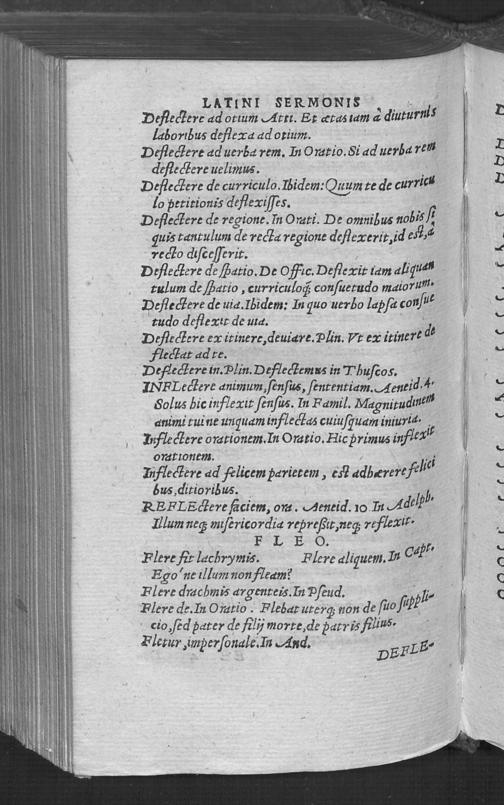 LATINI SERMONIS
Deflectere ad otium Atti. Et ætas iam à diuturnis
laboribus deflexa ad otium.
Deflectere ad uerba rem. In Oratio. Si ad uerba rem
deflectere uelimus.
Deflectere de curriculo. Ibidem: Quum te de curricu
lo petitionis deflexisses.
Deflectere de regione. In Orati. De omnibus nobis si
quis tantulum de recta regione deflexerit, id est, à
recto discesserit.
Deflectere de spatio. De Offic. Deflexit iam aliquan
tulum de spatio, curriculoq; consuetudo maiorum.
Deflectere de uia. Ibidem: In quo uerbo lapsa consue
tudo deflexit de uia.
Deflectere ex itinere, deuiare. Plin. Vt ex itinere de
flectat ad te.
Deflectere in. Plin. Deflectemus in Thuscos.
INFLectere animum, sensus, sententiam. Aeneid. 4.
Solus hic inflexit sensus. In Famil. Magnitudinem
animi tui ne unquam inflectas cuiusquam iniuria.
Inflectere orationem. In Oratio. Hic primus inflexit
orationem.
Inflectere ad felicem parietem, est adhærere felici
bus, ditioribus.
REFLEctere faciem, ora. Aeneid. 10 In Adelph.
Illum neq; misericordia repreßit, neq; reflexit.
FLEO.
Flere fit lachrymis. Flere aliquem. In Capt.
Ego'ne illum non fleam?
Flere drachmis argenteis. In Pseud.
Flere de. In Oratio. Flebat uterq; non de suo suppli-
cio, sed pater de filij morte, de patris filius.
Fletur, impersonale. In And.
DEFLE-